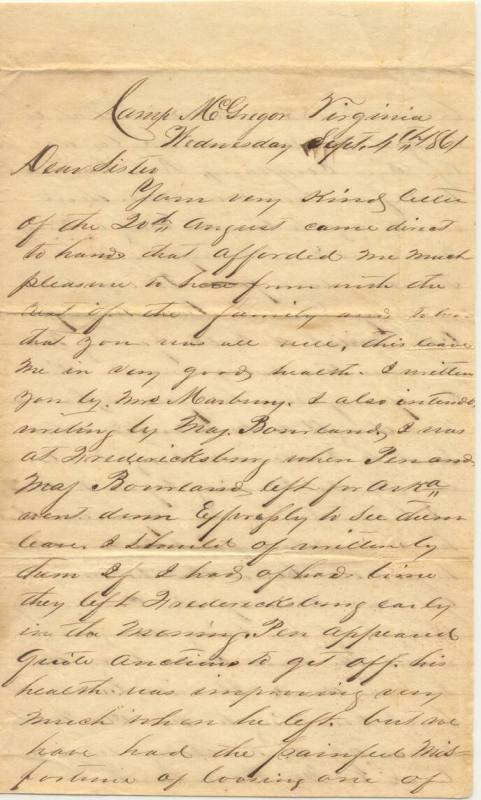 Camp McGregor Virginia
Wednesday Sept. 4th 1861
Dear Sister
Your very kind letter
of the 20th August came direct
to hand that afforded me much
pleasure to hear from with the
rest of the family and to hear
that you was all well, this leave
me in very good health. I written
you by Mrs Marbury. I also intended
writing by Maj. Bourland, I was
at Fredericksburg when Pen and
Maj Bourland left for Arka
went down Expressly to see them
leave. I should of written by
them If I had of had time
they left Fredericksburg early
in the morning. Pen appeared
quite anctious to get off. his
health was improving very
much when he left. but we
have had the painful mis-
fortune of loosing one of